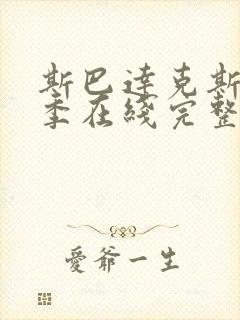 斯巴達克斯
季在綫完整
愛爺一生